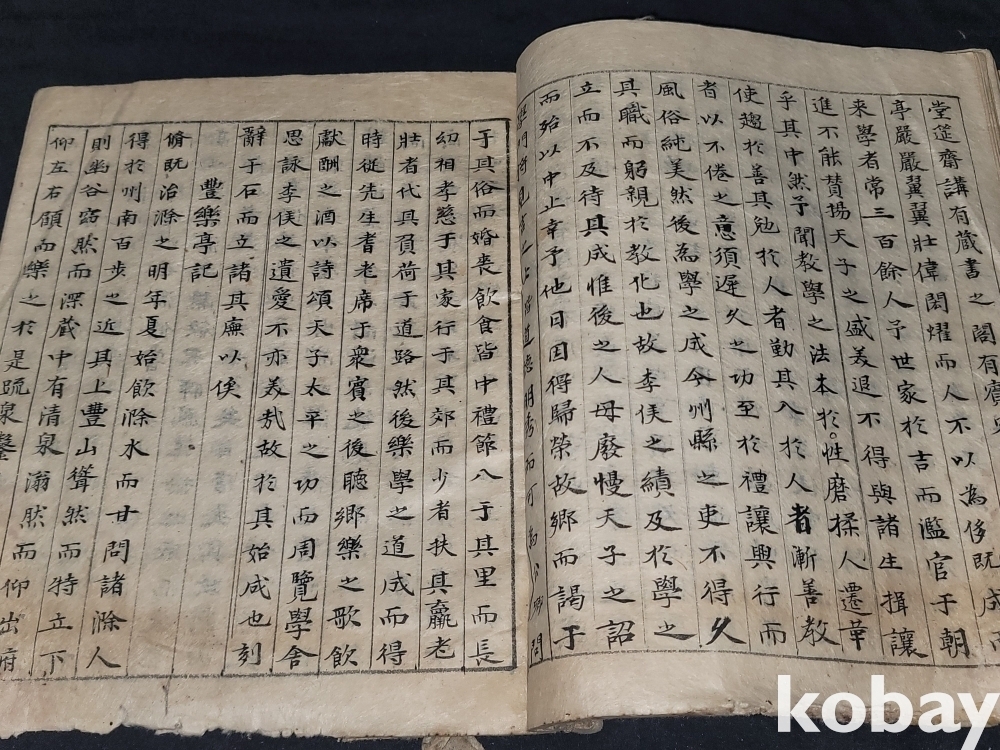 堂筵齋講有蔵書之閣有賓
亭嚴嚴翼翼壯偉閎耀而人不以為侈既成而
來學者常三百餘人予世家於吉而濫官于朝
進不能賛揚天子之盛美退不得與諸生揖讓
乎其中然予聞教學之法本於。性磨揉人遷革
使趨於善其勉於人者勤其入於人者漸善教
者以不倦之意須遲久之功至於禮讓興行而
風俗純美然後為學之成今州縣之吏不得久
其職而躬親於教化也故李侯之績及於學之
立而不及待其成惟後之人毋廢慢天子之詔
而殆以中止幸予他日因得歸榮故鄉而謁于
門將見吉之士皆道德明秀而可為公卿問
于其俗而婚喪飲食皆中禮節入于其里而長
幼相孝慈于其家行于其郊而少者扶其羸老
壯者代其負荷于道路然後樂學之道成而得
時從先生耆老席于衆賓之後聽鄉樂之歌飲
獻酬之酒以詩頌天子太平之功而周覽學舍
思詠李侯之遺愛不亦美哉故於其始成也刻
辭于石而立諸其廡以俟
豐樂亭記
脩既治滁之明年夏始飲滁水而甘問諸滁人
得於州南百步之近其上豐山聳然而特立下
則幽谷窈然而深蔵中有清泉滃然而仰出府
仰左右顧而樂之於是疏泉鑿
kobay